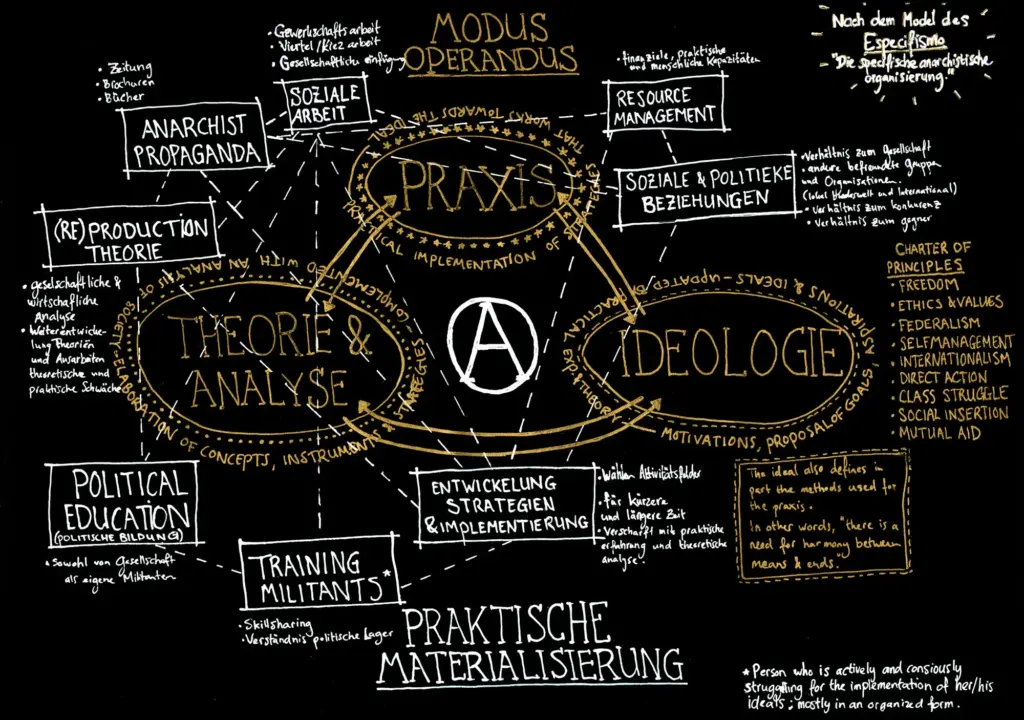 MODUS
OPERANDUS
Nach dem Model des
Especifismo
"Die spezifische anarchistische
organisierung."
• Gewerkschafts arbeit
• Viertel/Kiez arbeit
• Gesellschaftliche einfügung
SOZIALE
ARBEIT
• Zeitung
• Brochuren
• Bücher
ANARCHIST
PROPAGANDA
• finanziele, praktische
und menschliche Kapazitäten
RESOURCE
MANAGEMENT
SOZIALE & POLITIEKE
BEZIEHUNGEN
• Verhältnis zum Gesellschaft
• andere befreundete Gruppen
und Organisationen.
• Verhältnis zum konkurenz
• Verhältnis zum gegner
PRAXIS
PRACTICAL IMPLEMENTATION OF STRATEGIES
THAT WORKS TOWARDS THE IDEAL
(RE)PRODUCTION
THEORIE
• gesellschaftliche &
wirtschafliche
Analyse
• Weiterentwicke-
lung Theorien
und Ausarbeiten
theoretische und
praktische Schwäche
THEORIE &
ANALYSE
ELABORATION OF CONCEPTS, INSTRUMENTS & STRATEGIES - COMPLEMENTED WITH AN ANALYSIS OF SOCIETY
A
IDEOLOGIE
MOTIVATIONS, PROPOSAL OF GOALS, ASPIRATIONS & IDEALS - UPDATED BY PRACTICAL
CHARTER OF
PRINCIPLES
• FREEDOM
• ETHICS & VALUES
• FEDERALISM
• SELFMANAGEMENT
• INTERNATIONALISM
• DIRECT ACTION
• CLASS STRUGGLE
• SOCIAL INSERTION
• MUTUAL AID
POLITICAL
EDUCATION
(POLITISCHE BILDUNG)
• Sowohl von Gesellschaft
als eigene Militanten
TRAINING
MILITANTS*
• Skillsharing
• Verständnis politische Lager
ENTWICKELUNG
STRATEGIEN
& IMPLEMENTIERUNG
• Wählen Aktivitätsfelder
• für kürzere
und längere Zeit
• Verschärft mit praktische
erfahrung und theoretische
analyse.
The ideal also defines in
part the methods used for
the praxis.
In other words, "there is a
need for harmony between
means & ends."
PRAKTISCHE
MATERIALISIERUNG
* Person who is actively and consiously
struggling for the implementation of her/his
ideals; mostly in an organized form.